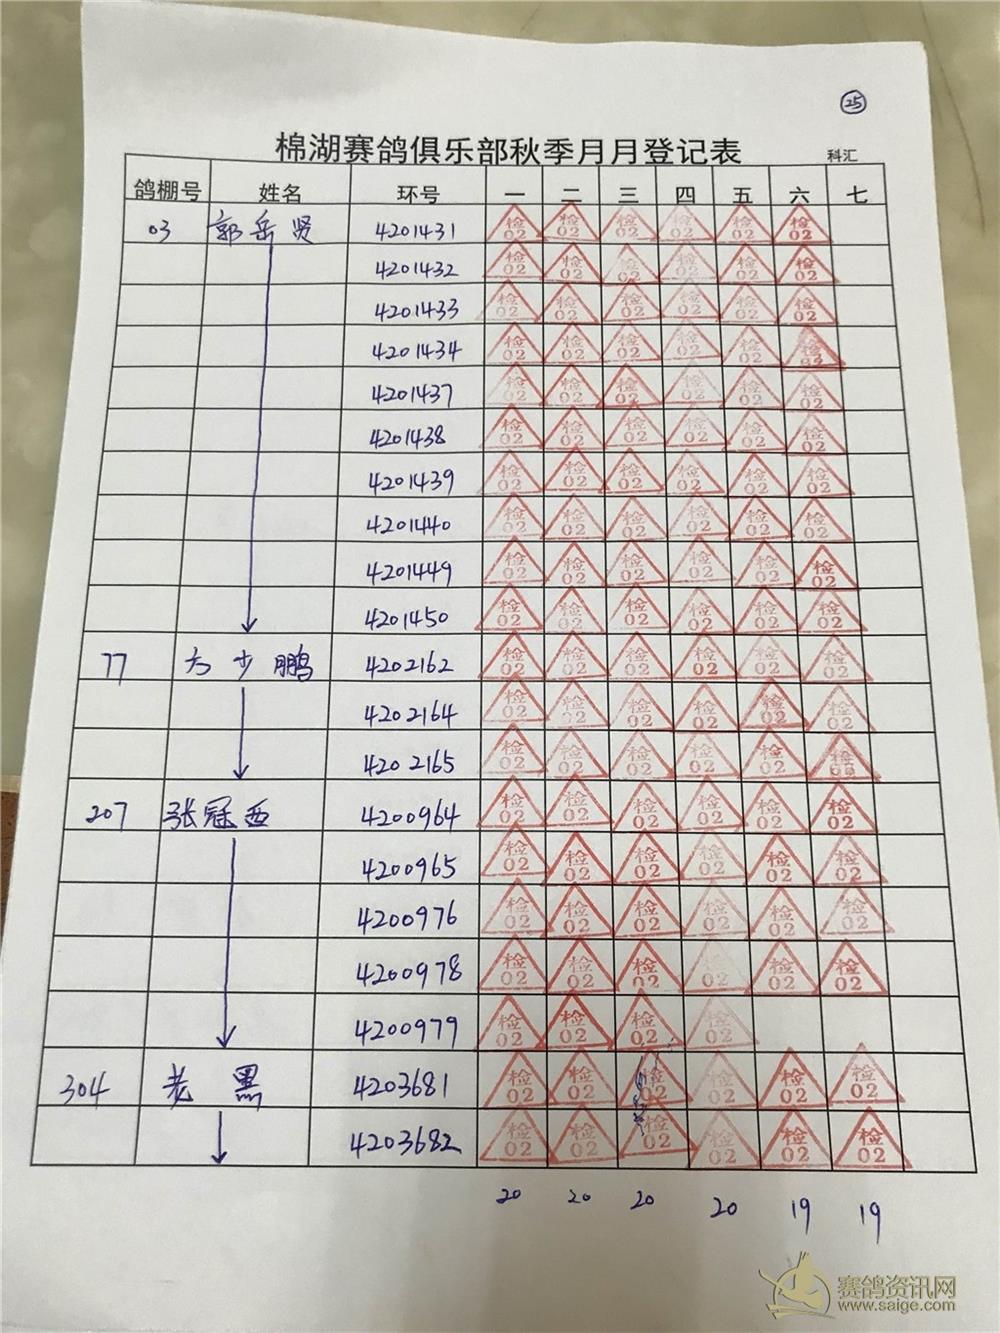 25
棉湖赛鸽俱乐部秋季月月登记表
科汇
鸽棚号 姓名 环号 一 二 三 四 五 六 七
03 郭岳贤 4201431 检02 检02 检02 检02 检02 检02
4201432 检02 检02 检02 检02 检02 检02
4201433 检02 检02 检02 检02 检02 检02
4201434 检02 检02 检02 检02 检02 检02
4201437 检02 检02 检02 检02 检02 检02
4201438 检02 检02 检02 检02 检02 检02
4201439 检02 检02 检02 检02 检02 检02
4201440 检02 检02 检02 检02 检02 检02
4201449 检02 检02 检02 检02 检02 检02
4201450 检02 检02 检02 检02 检02 检02
77 方少鹏 4202162 检02 检02 检02 检02 检02 检02
4202164 检02 检02 检02 检02 检02 检02
4202165 检02 检02 检02 检02 检02 检02
207 张冠西 4200964 检02 检02 检02 检02 检02 检02
4200965 检02 检02 检02 检02 检02 检02
4200976 检02 检02 检02 检02 检02 检02
4200978 检02 检02 检02 检02 检02 检02
4200979 检02 检02 检02 检02
304 老黑 4203681 检02 检02 检02 检02 检02 检02
4203682 检02 检02 检02 检02 检02 检02
20 20 20 20 19 19
赛鸽资讯网
www.saige.com